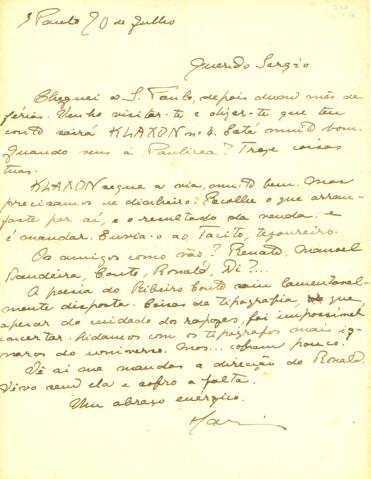 S. Paulo 20 de Julho
Querido Sergio
Cheguei a S. Paulo, depois dum mês de
férias. Venho visitar-te e dizer-te que teu
conto sairá KLAXON nº 4. Está muito bom.
Quando vens á Paulicea? Traze coisas
tuas.
KLAXON segue a via, muito bem. Mas
precisamos de dinheiro. Recolhe o que arran-
jaste por aí, e o resultado da venda, e
é mandar. Envia-o ao Tacito, tezoureiro.
Os amigos como vão? Renato, Manuel
Bandeira, Couto, Ronald, Di?...
A poesia do Ribeiro Couto saiu lamentavel-
mente disposta. Coisas de tipografia, que,
apesar do cuidado dos rapazes, foi impossivel
concertar. Lidamos com os tipógrafos mais ig-
naros do universo. Mas... cobram pouco.
Vê si me mandas a direcção do Ronald.
Vivo sem ela e sofro a falta.
Um abraço enérgico.
Mario